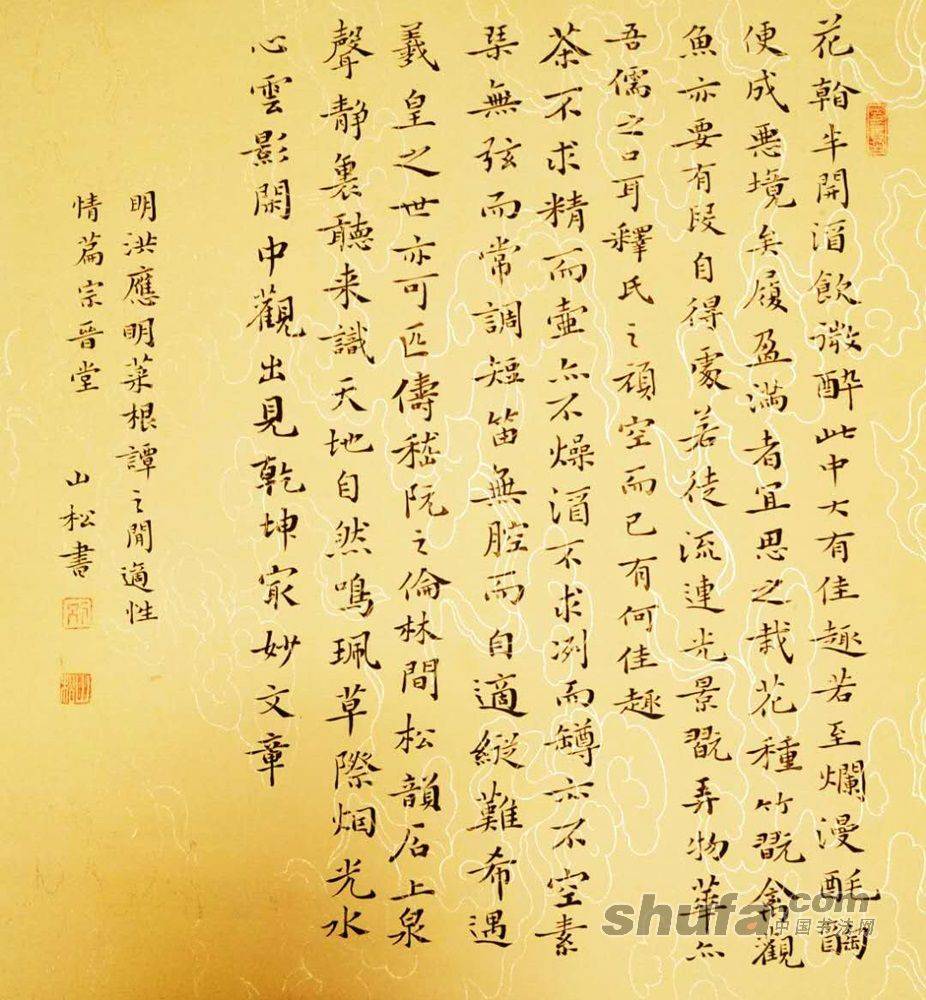 花看半開酒飲微酔此中大有佳趣若至爛漫酕醄
便成悪境矣履盈滿者宜思之栽花種竹翫禽觀
魚亦要有段自得處若徒流連光景翫弄物華亦
吾儒之口耳釋氏之頑空而已有何佳趣
茶不求精而壷亦不燥酒不求冽而罇亦不空素
琹無弦而常調短笛無腔而自適縦難希遇
羲皇之世亦可匹儔嵇阮之倫林間松韻石上泉
聲静裏聽来識天地自然鳴珮草際烟光水
心雲影閑中觀出見乾坤㝡妙文章
明洪應明菜根譚之閒適性
情篇宗晉堂 山松書
shufa.com
中国书法网